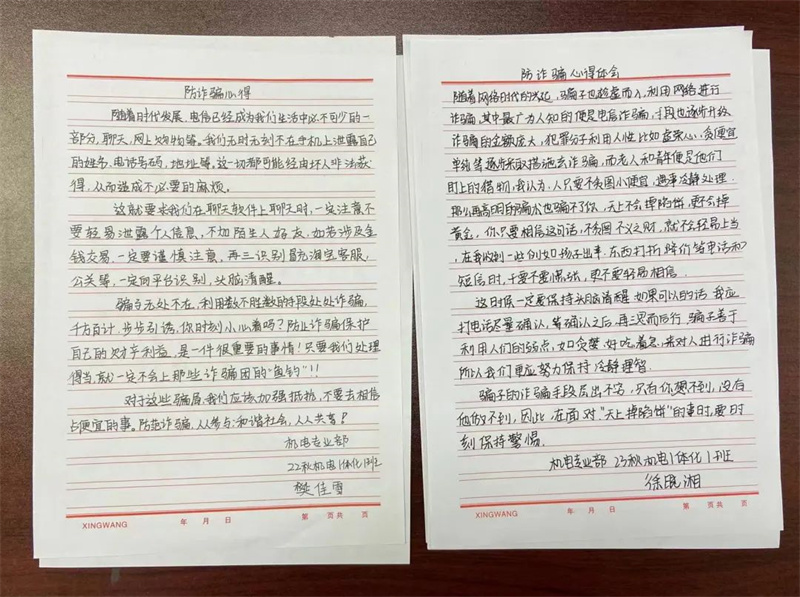 防诈骗心得
随着时代发展,电信已经成为我们生活中必不可少的一
部分,聊天,网上购物等。我们无时无刻不在手机上泄露自己
的姓名,电话号码,地址等。这一切都可能经由坏人非法获
得,从而造成不必要的麻烦。
这就要求我们在聊天软件上聊天时,一定注意不
要轻易泄露个人信息,不加陌生人好友,如若涉及金
钱交易,一定要谨慎注意,再三识别冒充淘宝客服,
公关等,一定向平台识别,头脑清醒。
骗子无处不在,利用数不胜数的手段处处诈骗,
千方百计,步步引诱,你时刻小心着吗?防止诈骗保护
自己的财产利益,是一件很重要的事情!只要我们处理
得当,就一定不会上那些诈骗团的“鱼钓”!!
对于这些骗局,我们应该加强抵抗,不要去相信
占便宜的事。防范诈骗,人人参与;和谐社会,人人共享!
机电专业部
22秋机电1体化1班
樊佳雪
XINGWANG 年 月 日 第 页共 页
防诈骗心得体会
随着网络时代的兴化,骗子也趁虚而入,利用网络进行
诈骗,其中最广为人知的便是电信诈骗,手段也逐渐升级,
诈骗的金额庞大,犯罪分子利用人性比如虚荣心,贪便宜
单纯等逐步采取措施去诈骗,而老人和青年便是他们
盯上的猎物,我认为,人只要不贪图小便宜,遇事冷静处理
那么再高明的骗术也骗不了你,天上不会掉馅饼,更不会掉
黄金,你只要相信这句话,不贪图不义之财,就不会轻易上当
在我收到一些例如扬子出车,东西打折,降价等电话和
短信时,千万不要慌张,更不要轻易相信。
这时候一定要保持头脑清醒,如果可以的话,我应
打电话尽量确认,等确认之后,再三思而后行,骗子善于
利用人们的弱点,如贪婪,好吃着急,来对人进行诈骗
所以我们更应努力保持冷静理智。
骗子的诈骗手段层出不穷,只有你想不到,没有
他做不到,因此,在面对“天上掉馅饼”的事时,要时
刻保持警惕。
机电专业部 23秋机电1体化1班
徐晓湘
XINGWANG 年 月 日 第 页共 页